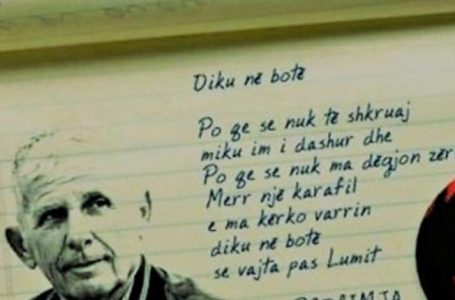 Diku në botë
Po qe se nuk të shkruaj
miku im i dashur dhe
Po qe se nuk ma dëgjon zër
Merr një karafil
e ma kërko varrin
diku në botë
se vajta pas Lumit